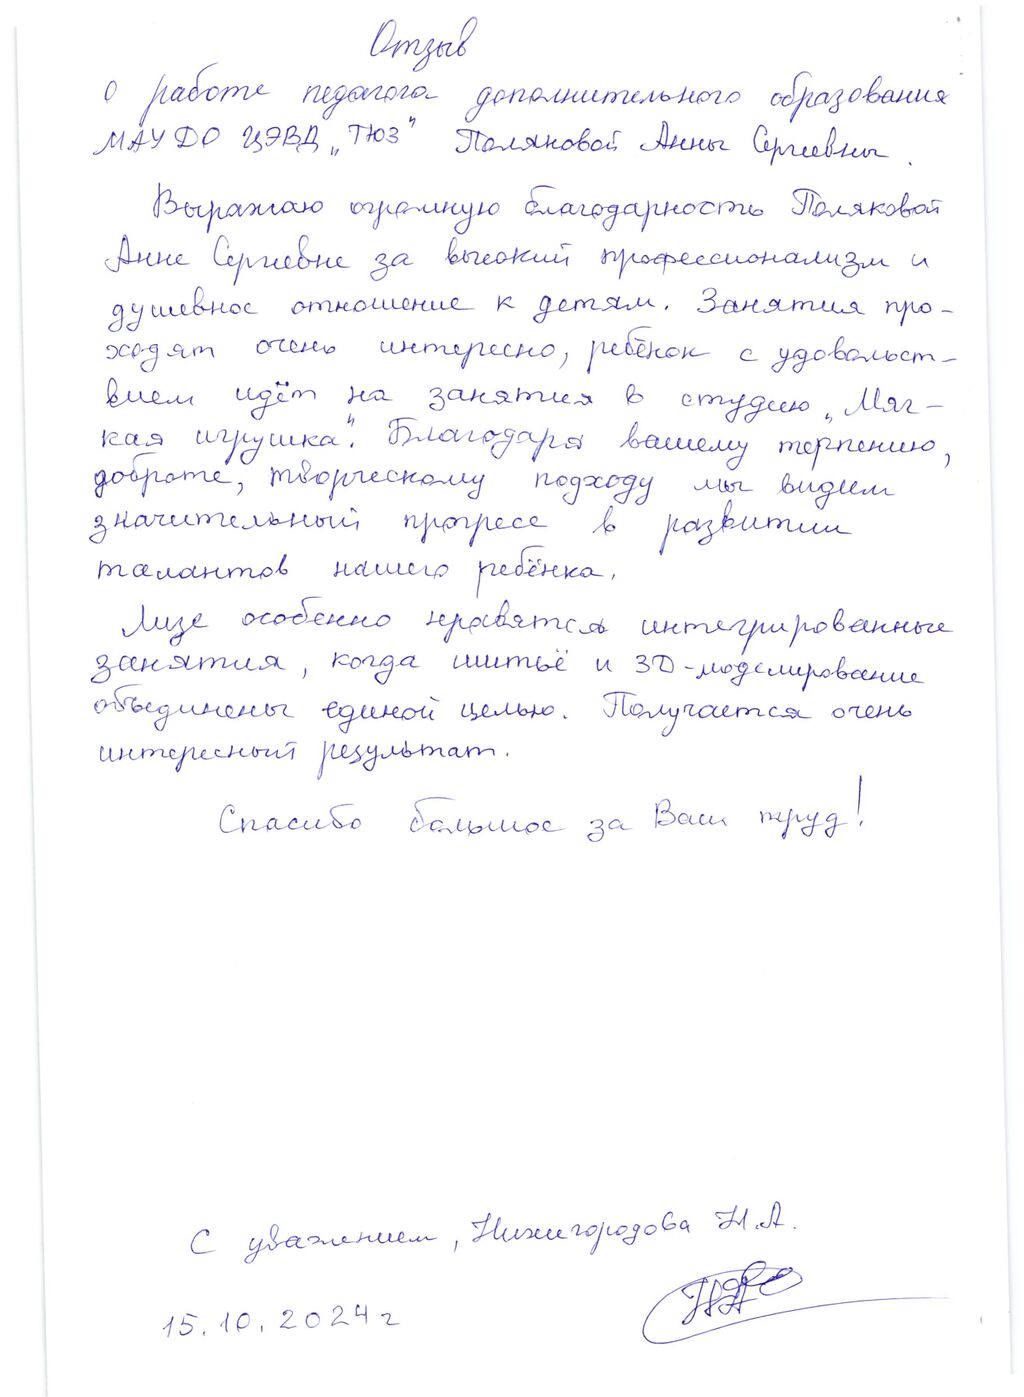 Отзыв
о работе педагога дополнительного образования
МАУ ДО ЦЭВД „ТЮЗ" Поляковой Анны Сергеевны.
Выражаю огромную благодарность Поляковой
Анне Сергеевне за высокий профессионализм и
душевное отношение к детям. Занятия про-
ходят очень интересно, ребёнок с удовольст-
вием идёт на занятия в студию „Мяг-
кая игрушка". Благодаря вашему терпению,
доброте, творческому подходу мы видим
значительный прогресс в развитии
талантов нашего ребёнка.
Лизе особенно нравятся интегрированные
занятия, когда шитьё и 3D-моделирование
объединены единой целью. Получается очень
интересный результат.
Спасибо большое за Ваш труд!
С уважением, Нижигородова Н.А.
15.10.2024 г